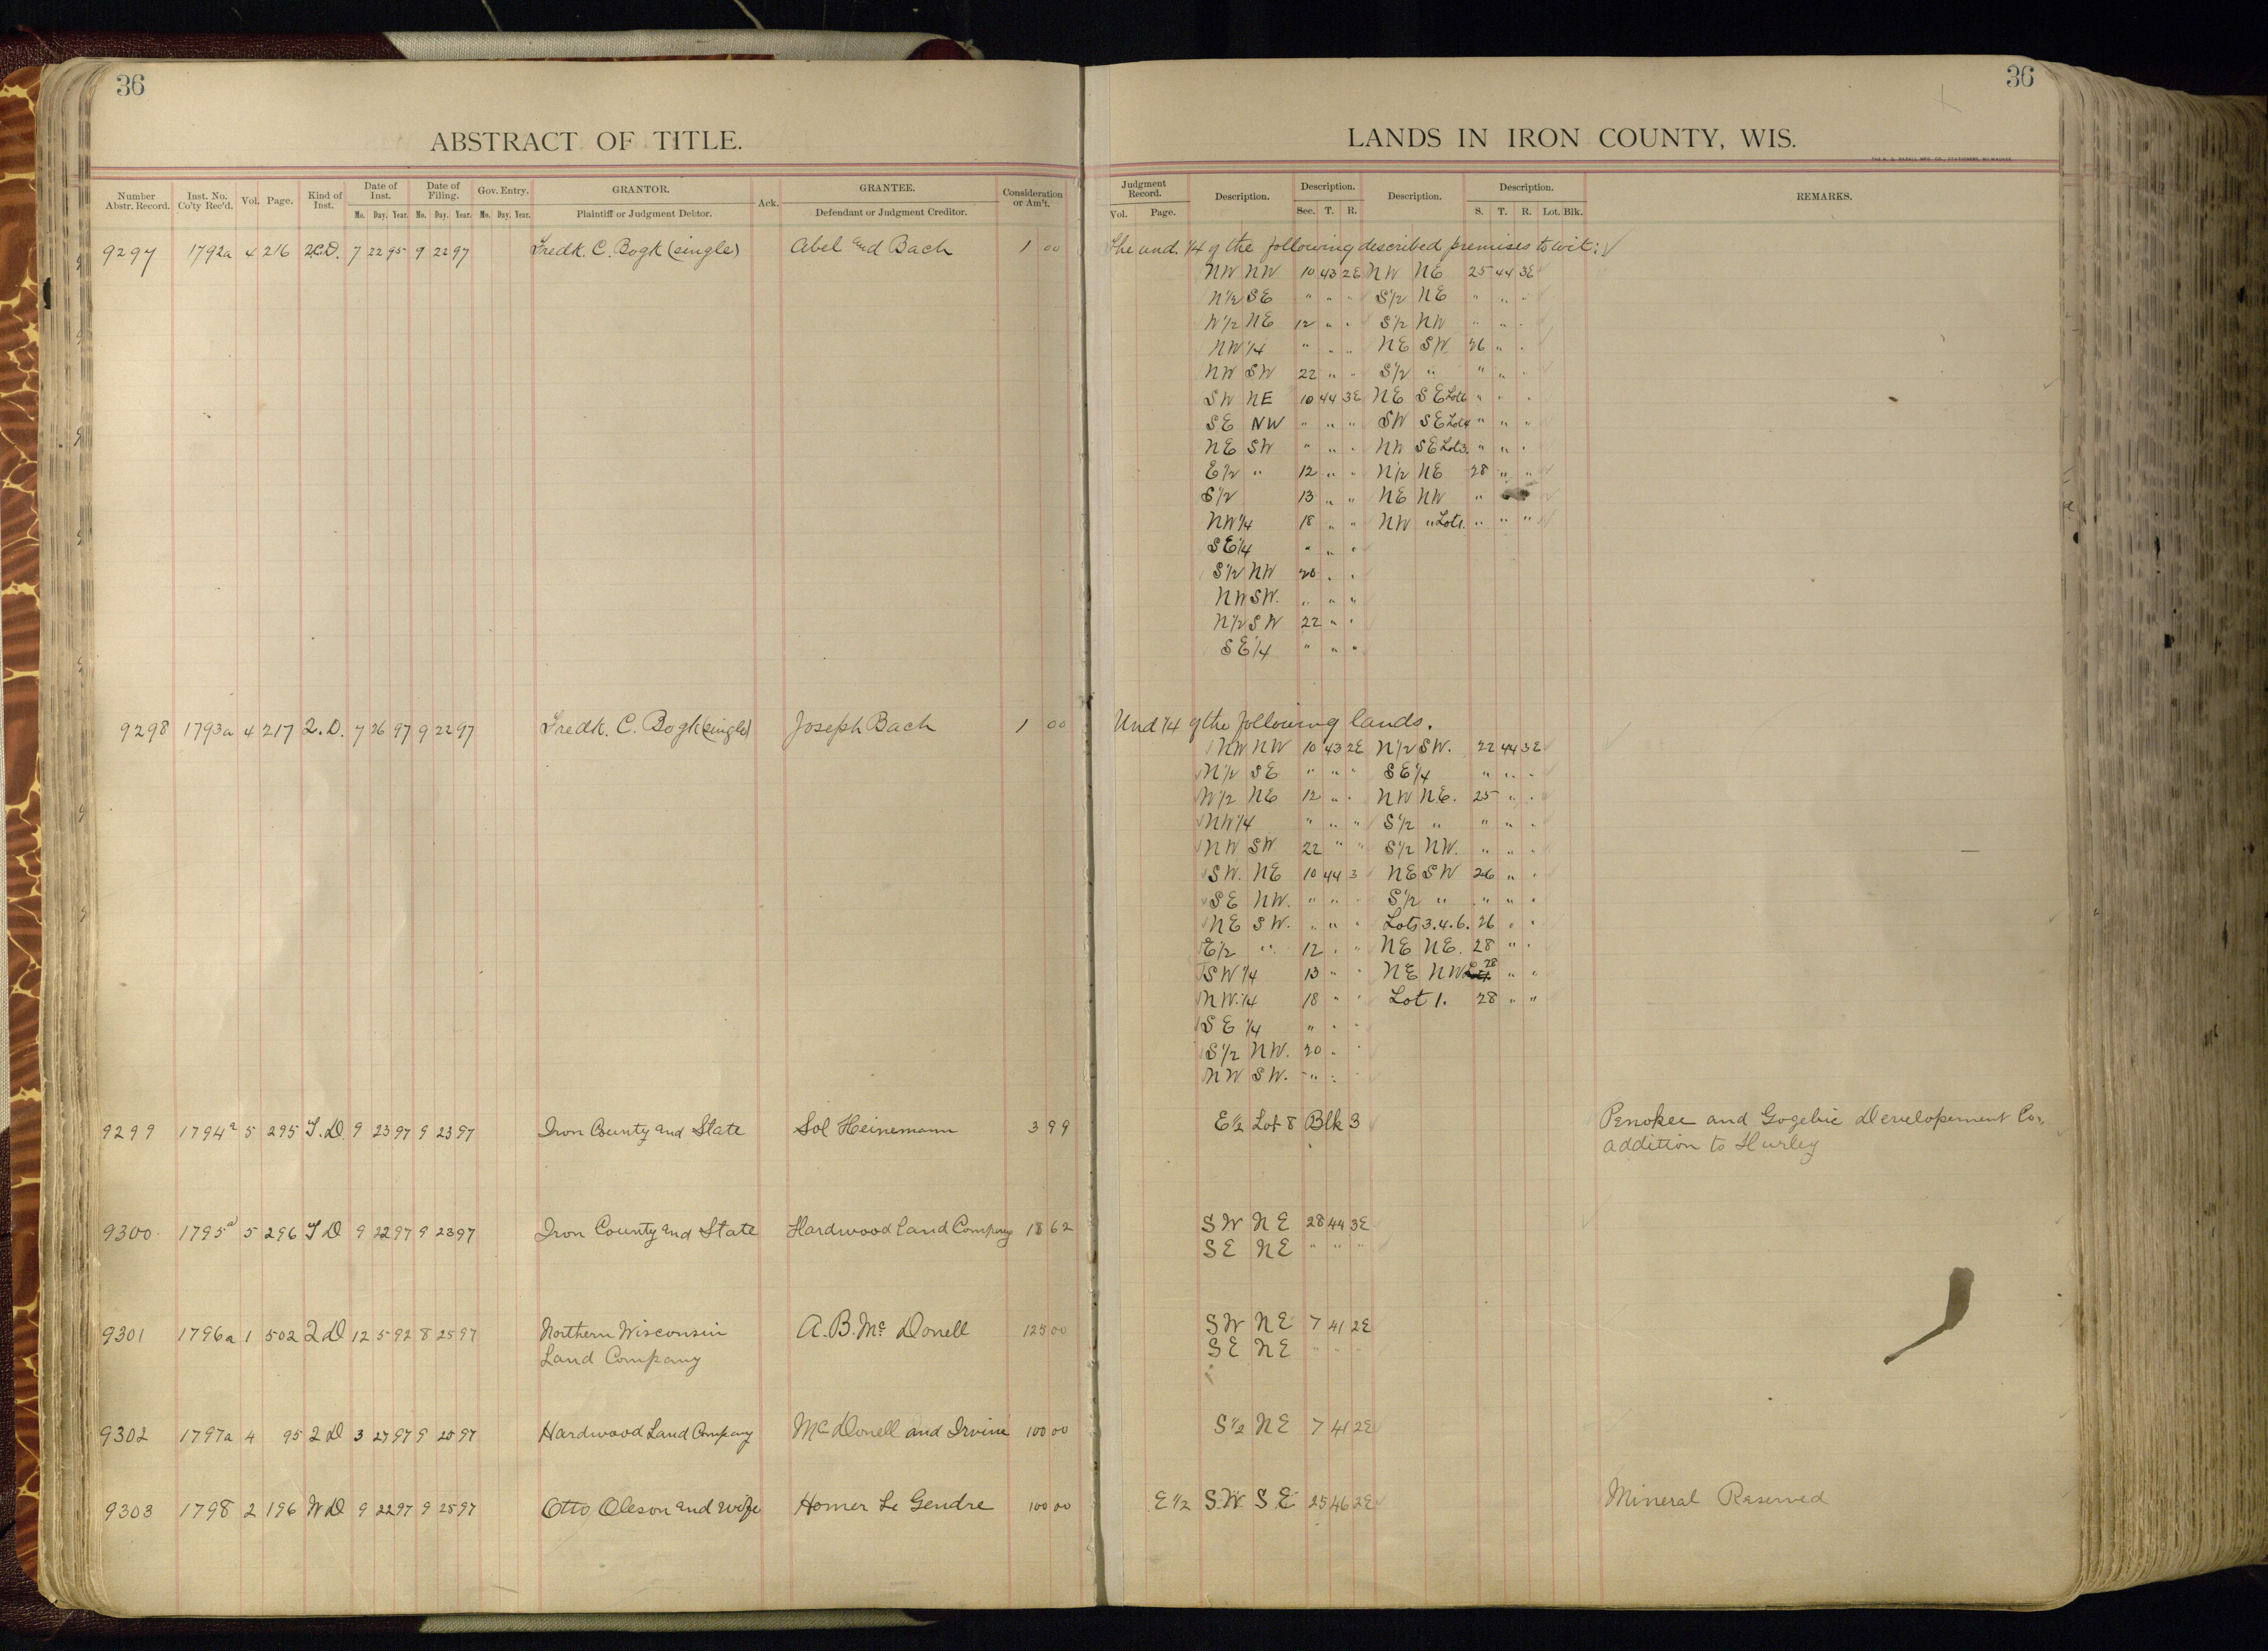 36
36
ABSTRACT OF TITLE.
LANDS IN IRON COUNTY, WIS.
Number Abstr. Record. Inst. No. Co'ty Rec'd. Vol. Page. Kind of Inst. Date of Inst. Mo. Day. Year. Date of Filing. Mo. Day. Year. Gov. Entry. Mo. Day. Year. GRANTOR. Plaintiff or Judgment Debtor. Ack. GRANTEE. Defendant or Judgment Creditor. Consideration or Am't.
Judgment Record. Vol. Page. Description. Description. Sec. T. R. Description. Description. S. T. R. Lot. Blk. REMARKS.
9297 1792a 4 216 2.C.D. 7 22 95 9 22 97 Fredk. C. Bogk (single) Abel End Bach 1 00 The und. 1/4 of the following described premises to wit:
NW NW 10 43 2E NW NE 25 44 3E
N1/2 SE " " " S1/2 NE " " "
W1/2 NE 12 " " S1/2 NW " " "
NW1/4 " " " NE SW 26 " "
NW SW 22 " " S1/2 " " " "
SW NE 10 44 3E NE SE Lot 6 " " "
SE NW " " " SW SE Lot 4 " " "
NE SW " " " NW SE Lot 3. " " "
E1/2 " 12 " " N1/2 NE 28 " "
S1/2 13 " " NE NW "
NW1/4 18 " " NW " Lot 1. " " "
SE1/4 " " "
S1/2 NW 20 " "
NW SW. " " "
N1/2 SW 22 " "
SE1/4 " " "
9298 1793a 4 217 2.D. 7 26 97 9 22 97 Fredk. C. Bogk (single) Joseph Bach 1 00 Und 1/4 of the following lands.
NW NW 10 43 2E N1/2 SW. 22 44 3E
N1/2 SE " " " SE1/4 " " "
W1/2 NE 12 " " NW NE. 25 " "
NW1/4 " " " S1/2 " " " "
NW SW 22 " " S1/2 NW. " " "
SW. NE 10 44 3 NE SW 26 " "
SE NW. " " " S1/2 " " " "
NE SW. " " " Lots 3.4.6. 26 " "
E1/2 " 12 " " NE NE. 28 " "
SW1/4 13 " " NE NW 28 " "
NW.1/4 18 " " Lot 1. 28 " "
SE 1/4 " " "
S1/2 NW. 20 " "
NW SW. " "
9299 1794a 5 295 T.D. 9 23 97 9 23 97 Iron County and State Sol Heinemann 3 99 E1/2 Lot 8 Blk 3 Penokee and Gogebic Developement Co,
addition to Hurley
9300 1795a 5 296 T D 9 22 97 9 23 97 Iron County and State Hardwood Land Company 18 62 SW NE 28 44 3E
SE NE " " "
9301 1796a 1 502 2 D 12 5 92 8 25 97 Northern Wisconsin A. B. Mc Donell 125 00 SW NE 7 41 2E
Land Company SE NE " " "
9302 1797a 4 95 2 D 3 27 97 9 25 97 Hardwood Land Company McDonell and Irvine 100 00 S1/2 NE 7 41 2E
9303 1798 2 196 W D 9 22 97 9 25 97 Otto Oleson and wife Homer Le Gendre 100 00 E 1/2 SW SE 25 46 2E Mineral Reserved